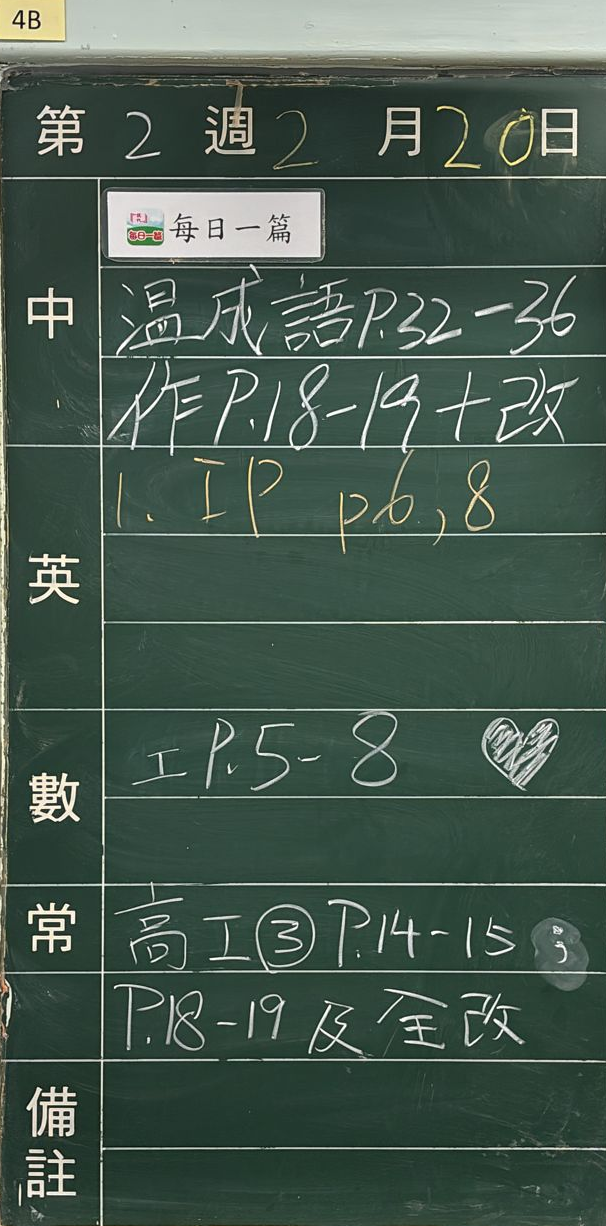 4B
第 2 週 2 月 20 日
中
每日一篇
每日一篇
温成語P.32-36
作P.18-19+改
英
1. IP p6,8
數
工P.5-8
常
高工③P.14-15
P.18-19及全改
備註